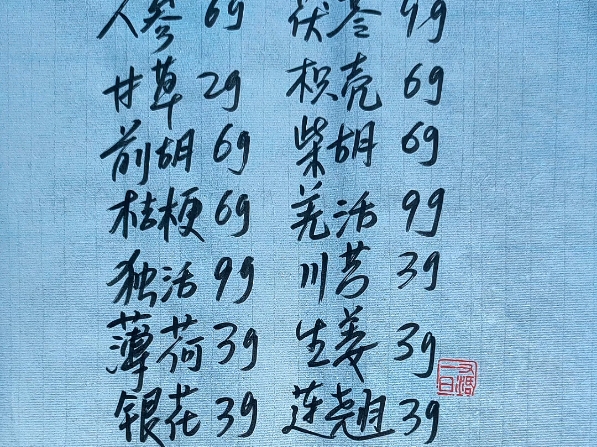 人参 6g 茯苓 9g
甘草 2g 枳壳 6g
前胡 6g 柴胡 6g
桔梗 6g 羌活 9g
独活 9g 川芎 3g
薄荷 3g 生姜 3g
银花 3g 连翘 3g